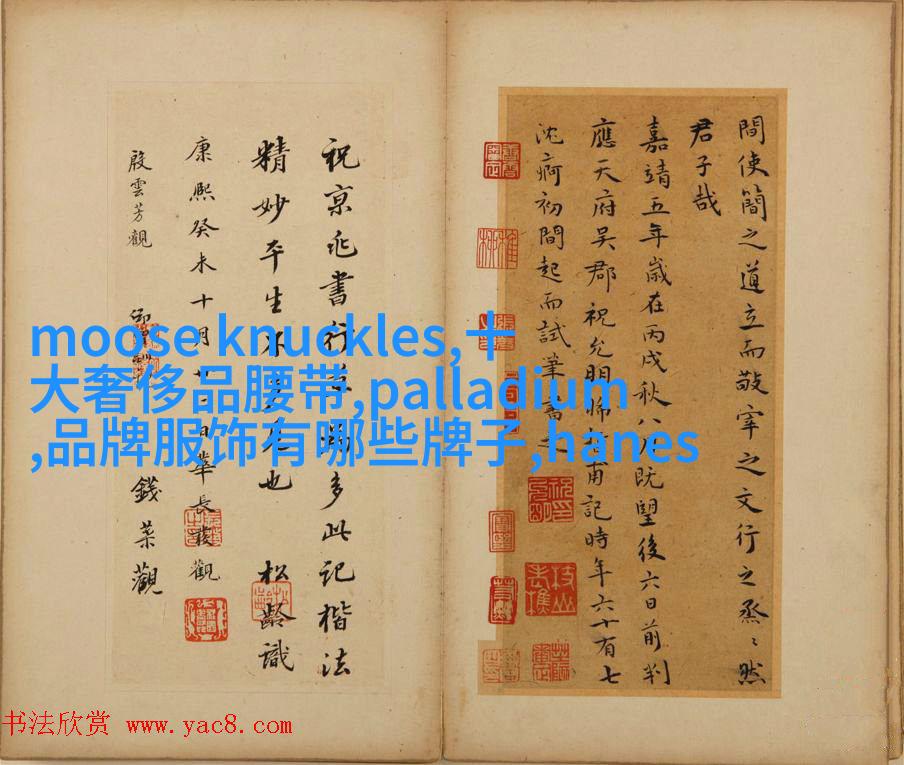 間使簡之道立而敬宰之文行之烝〻然
君子哉
嘉靖五年歲在丙戌秋八月既望後六日前判
應天府吳郡祝允明甫記時年六十有七
沈痾初間起而試筆書之
祝京兆書行草多此記楷法
精妙平生不多見也 松齡識
康熙癸未十月廿日華長發觀
殷雲芳觀
錢菜觀
moose knuckles,十
大奢侈品腰带,palladium
,品牌服饰有哪些牌子,hanes
书法欣赏 www.yac8.com